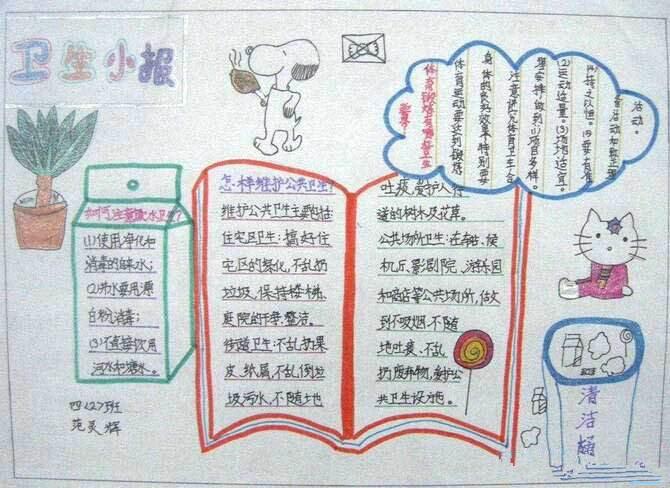 卫生小报
如何注意饮水卫生?
(1)使用净化和
消毒的自来水;
(2)井水要用漂
白粉消毒;
(3)不直接饮用
河水和塘水。
四(2)班
范灵辉
怎样维护公共卫生?
维护公共卫生主要包括
住宅区卫生:搞好住
宅区的绿化,不乱扔
垃圾,保持楼梯、
庭院的干净、整洁。
街道卫生:不乱扔果
皮、纸屑,不乱倒垃
圾污水,不随地
吐痰,爱护人行
道的树木及花草。
公共场所卫生:在车站、候
机厅、影剧院、游乐园
和商店等公共场所,做
到不吸烟,不随
地吐痰、不乱
扔废弃物,爱护公
共卫生设施。
体育锻炼有哪些卫生
要求
体育运动要达到锻炼
身体的良好效果,特别要
注意讲究体育卫生,合
理安排,做到:(1)项目多样。
(2)运动适量。(3)场地适宜。
(4)持之以恒。(5)要有准
备活动和整理
活动。
清洁桶